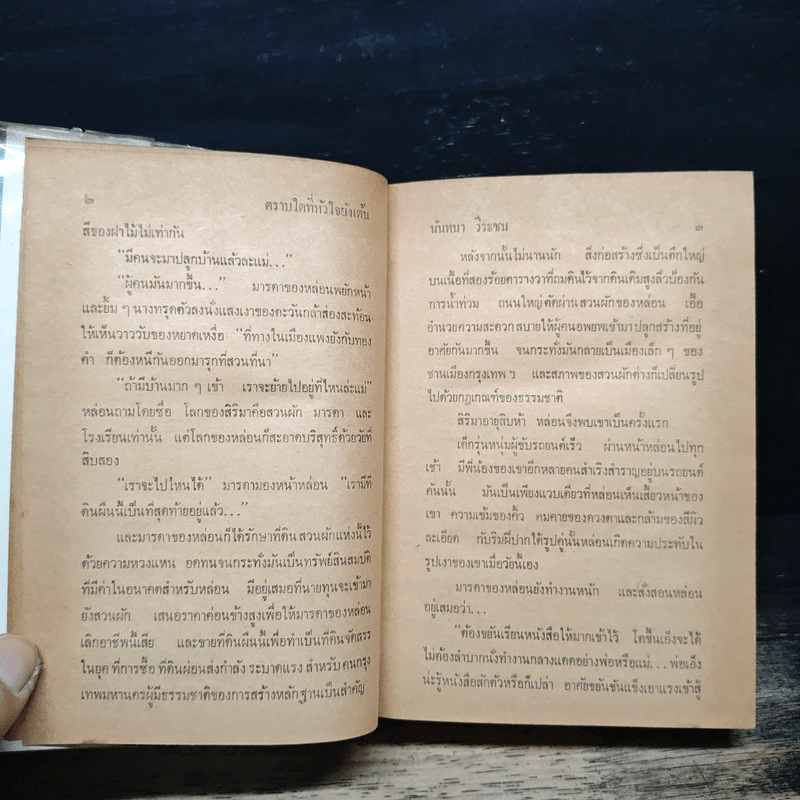 ๒ ตราบใดที่หัวใจยังเต้น
สีของฝาไม้ไม่เท่ากัน
“มีคนจะมาปลูกบ้านแล้วละแม่...”
“ผู้คนมันมากขึ้น...” มารดาของหล่อนพยักหน้า
และยิ้ม ๆ นางทรุดตัวลงนั่งแสงเงาของตะวันกล้าส่องสะท้อน
ให้เห็นวาววับของหยาดเหงื่อ “ที่ทางในเมืองแพงยังกับทอง
คำ ก็ต้องหนีกันออกมารุกที่สวนที่นา”
“ถ้ามีบ้านมาก ๆ เข้า เราจะย้ายไปอยู่ที่ไหนล่ะแม่”
หล่อนถามโดยซื่อ โลกของสิริมาคือสวนผัก มารดา และ
โรงเรียนเท่านั้น แต่โลกของหล่อนก็สะอาดบริสุทธิ์ด้วยวัยที่
สิบสอง
“เราจะไปไหนได้” มารดามองหน้าหล่อน “เรามีที่
ดินผืนนี้เป็นที่สุดท้ายอยู่แล้ว...”
และมารดาของหล่อนก็ได้รักษาที่ดิน สวนผักแห่งนี้ไว้
ด้วยความหวงแหน อดทนจนกระทั่งมันเป็นทรัพย์สินสมบัติ
ที่มีค่าในอนาคตสำหรับหล่อน มีอยู่เสมอที่นายทุนจะเข้ามา
ยังสวนผัก เสนอราคาค่อนข้างสูงเพื่อให้มารดาของหล่อน
เลิกอาชีพนี้เสีย และขายที่ดินผืนนี้เพื่อทำเป็นที่ดินจัดสรร
ในยุค ที่การซื้อ ที่ดินผ่อนส่งกำลัง ระบาดแรง สำหรับ คนกรุง
เทพมหานครผู้มีธรรมชาติของการสร้างหลักฐานเป็นสำคัญ
นันทนา วีระชน ๓
หลังจากนั้นไม่นานนัก สิ่งก่อสร้างซึ่งเป็นตึกใหญ่
บนเนื้อที่สองร้อยตารางวาที่ถมดินไว้จากดินเดิมสูงลิ่วป้องกัน
การน้ำท่วม ถนนใหญ่ตัดผ่านสวนผักของหล่อน เอื้อ
อำนวยความสะดวกสบายให้ผู้คนอพยพเข้ามาปลูกสร้างที่อยู่
อาศัยกันมากขึ้น จนกระทั่งมันกลายเป็นเมืองเล็ก ๆ ของ
ชานเมืองกรุงเทพฯ และสภาพของสวนผักต่างก็เปลี่ยนรูป
ไปด้วยกฎเกณฑ์ของธรรมชาติ
สิริมาอายุสิบห้า หล่อนจึงพบเขาเป็นครั้งแรก
เด็กรุ่นหนุ่มผู้ขับรถยนต์เร็ว ผ่านหน้าหล่อนไปทุก
เช้า มีพี่น้องของเขาอีกหลายคนสำเริงสำราญอยู่บนรถยนต์
คันนั้น มันเป็นเพียงแวบเดียวที่หล่อนเห็นเสี้ยวหน้าของ
เขา ความเข้มของคิ้ว คมคายของดวงตาและกล้ามของสีผิว
ละเอียด กับริมฝีปากได้รูปคู่นั้นหล่อนเกิดความประทับใจใน
รูปเงาของเขาเมื่อวัยนี้เอง
มารดาของหล่อนยังทำงานหนัก และสั่งสอนหล่อน
อยู่เสมอว่า...
“ต้องขยันเรียนหนังสือให้มากเข้าไว้ โตขึ้นเอ็งจะได้
ไม่ต้องลำบากนั่งทำงานกลางแดดอย่างพ่อหรือแม่...พ่อเอ็ง
น่ะรู้หนังสือสักตัวหรือก็เปล่า อาศัยขยันขันแข็งเอาแรงเข้าสู้